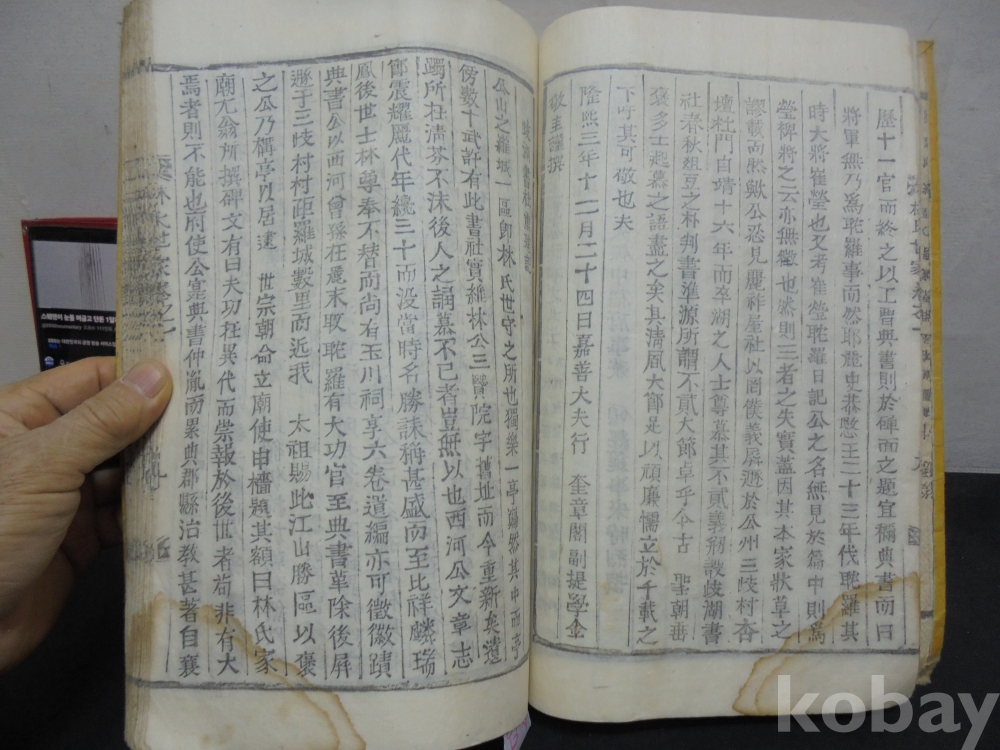 歷十一官而終之以工曹典書則於碑面之題宜稱典書而曰
將軍無乃爲耽羅事而然耶麗史恭愍王二十三年代耽羅其
時大將崔瑩也又考崔瑩耽羅日記公之名無見於篇中則爲
瑩裨將之云亦無徵也然則三者之失實蓋因其本家狀草之
謬載而然歟公恐見麗祚屋社以罔僕義屛遯於公州三歧村杏
壇杜門自靖十六年而卒湖之人士尊慕其不貳義剏設歧湖書
社春秋俎豆之朴判書準源所謂不貳大節卓乎今古 聖朝毋
褒多士起慕之語盡之矣其淸風大節足以頑廉懦立於千載之
下吁其可敬也夫
隆熙三年十二月二十四日嘉善大夫行 奎章閣副提學金
敬圭謹撰
公山之羅城一區卽林氏世守之所也獨樂一亭巋然其中而亭
傍數十武許有此書社實維林公三賢院宇舊址而今重新矣遺
躅所在淸芬不沫後人之謂慕不已者豈無以也西河公文章志
節震耀歷代年纔三十而沒當時名勝誄稱甚盛而至比祥麟瑞
鳳後世士林尊奉不替而尙有玉川祠享六卷遺編亦可徵徽蹟
典書公以西河曾孫在麗末取耽羅有大功官至典書革除後屛
遯于三歧村村距羅城數里而近我 太祖賜此江山勝區以褒
之公乃構亭以居逮 世宗朝命立廟使申檣題其額曰林氏家
廟尤翁所撰碑文有曰夫功在異代而崇報於後世者苟非有大
焉者則不能也府使公寔典書仲胤而累典郡縣治敎甚著自襄
林氏世家卷之一
kobay